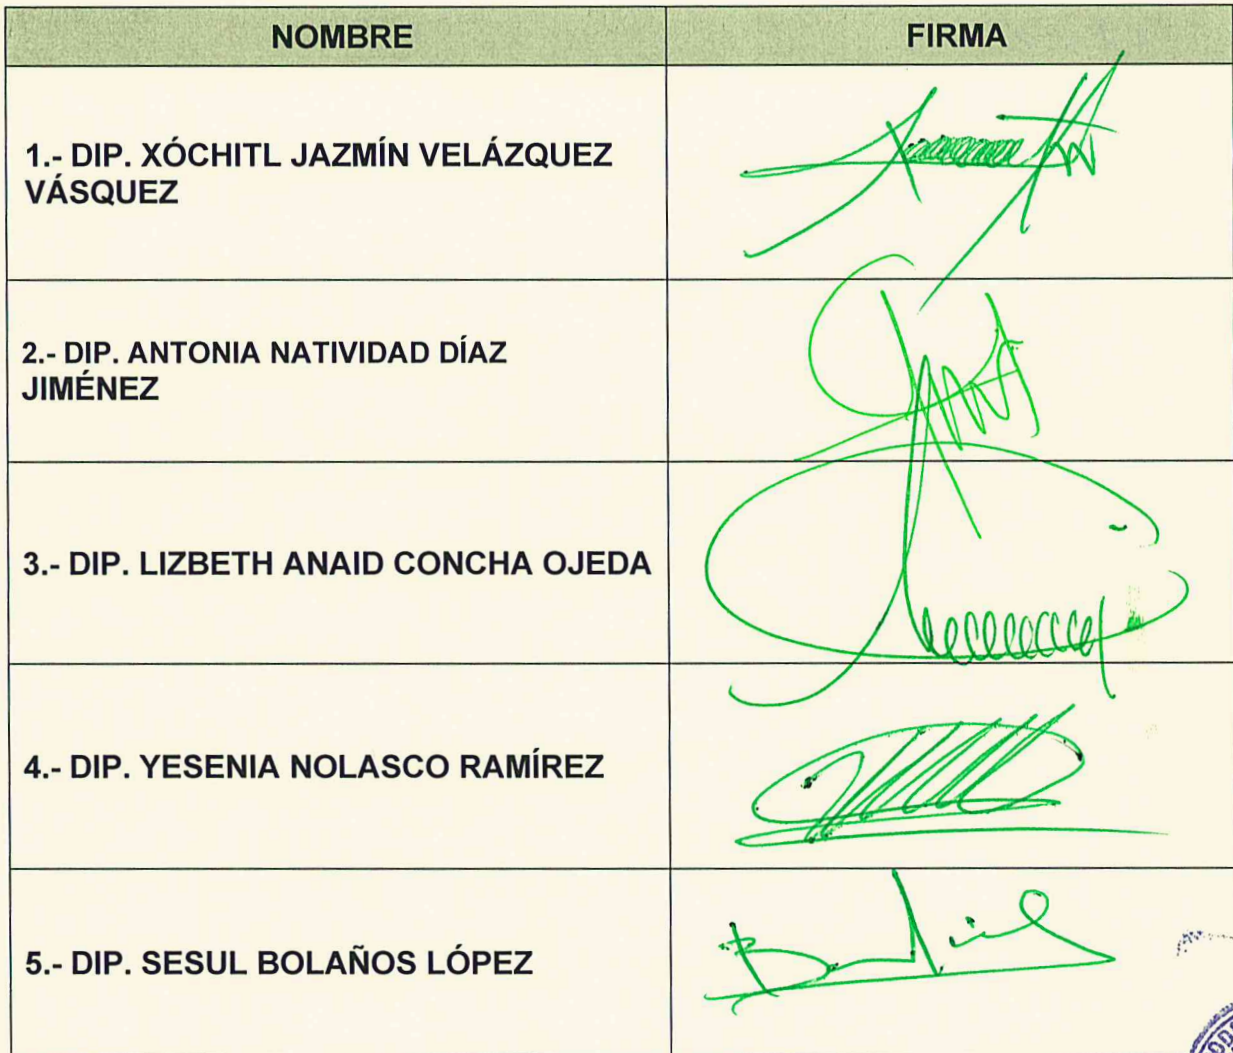 NOMBRE FIRMA
1.- DIP. XÓCHITL JAZMÍN VELÁZQUEZ
VÁSQUEZ
2.- DIP. ANTONIA NATIVIDAD DÍAZ
JIMÉNEZ
3.- DIP. LIZBETH ANAID CONCHA OJEDA
4.- DIP. YESENIA NOLASCO RAMÍREZ
5.- DIP. SESUL BOLAÑOS LÓPEZ